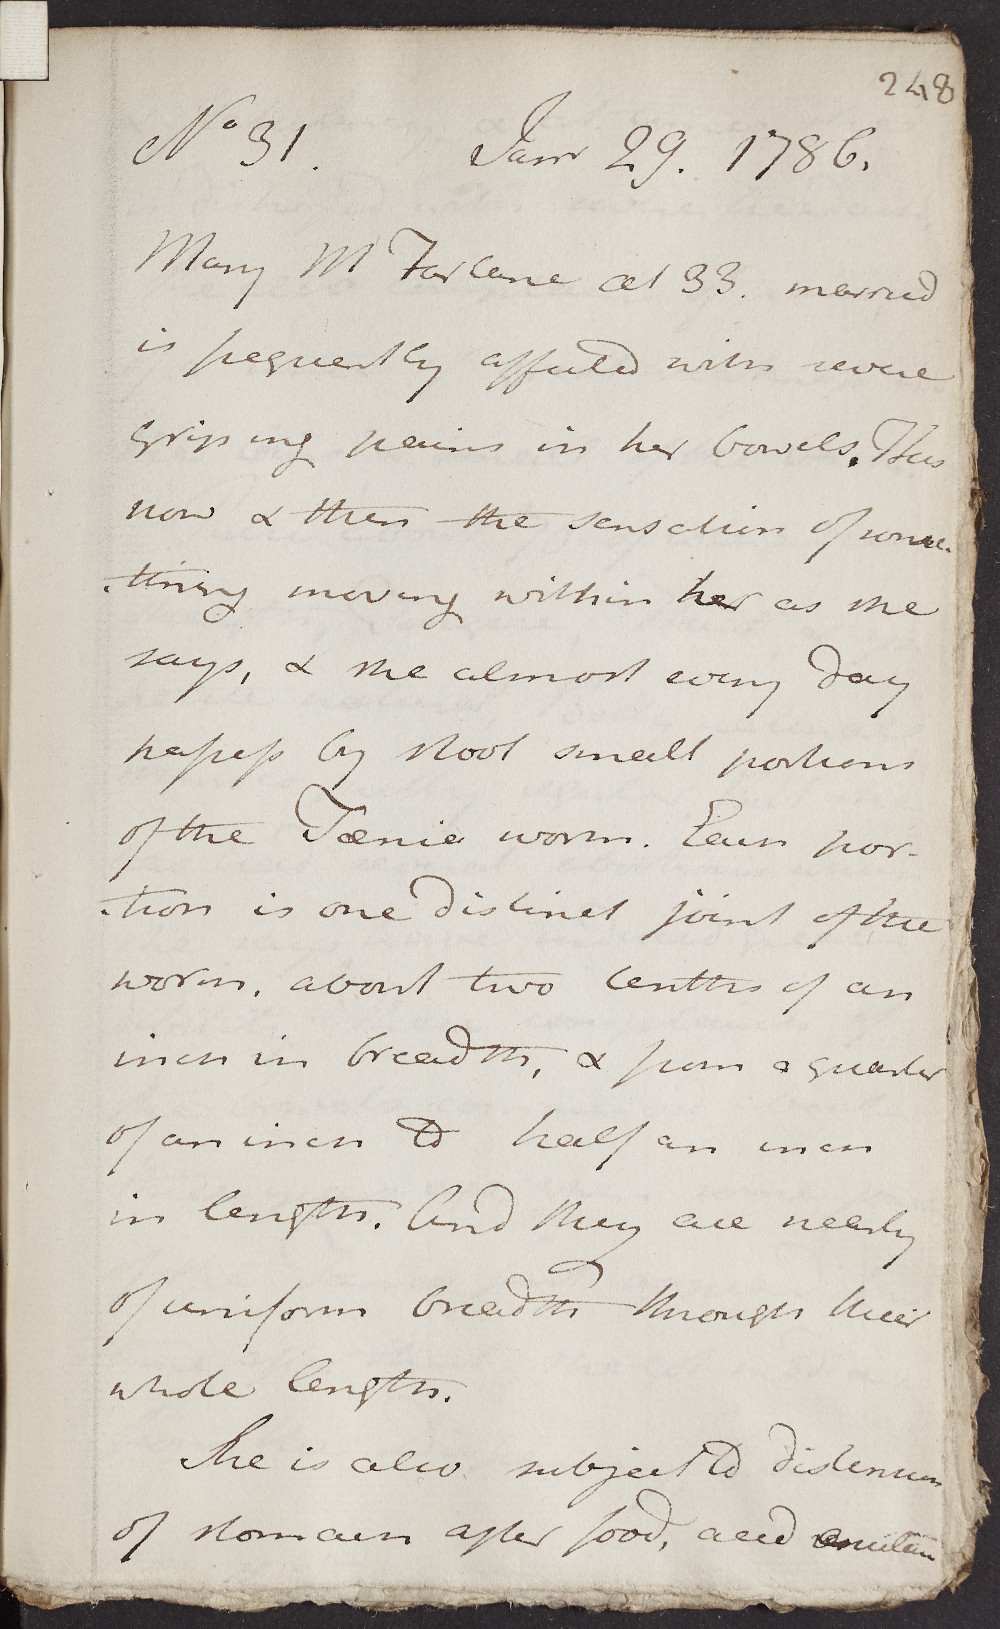 248
No 31. Janr 29. 1786.
Mary Mc Farlane æt 33. married
is frequently affected with severe
griping pains in her bowels. Has
now & then the sensation of some-
-thing moving within her as she
says, & she almost every day
passes by stool small portions
of the Tænia worm. Each por-
-tion is one distinct joint of the
worm, about two tenths of an
inch in breadth, & from a quarter
of an inch to half an inch
in length. And they are nearly
of uniform breadth through their
whole length.
She is also subject to distension
of stomach after food, acid